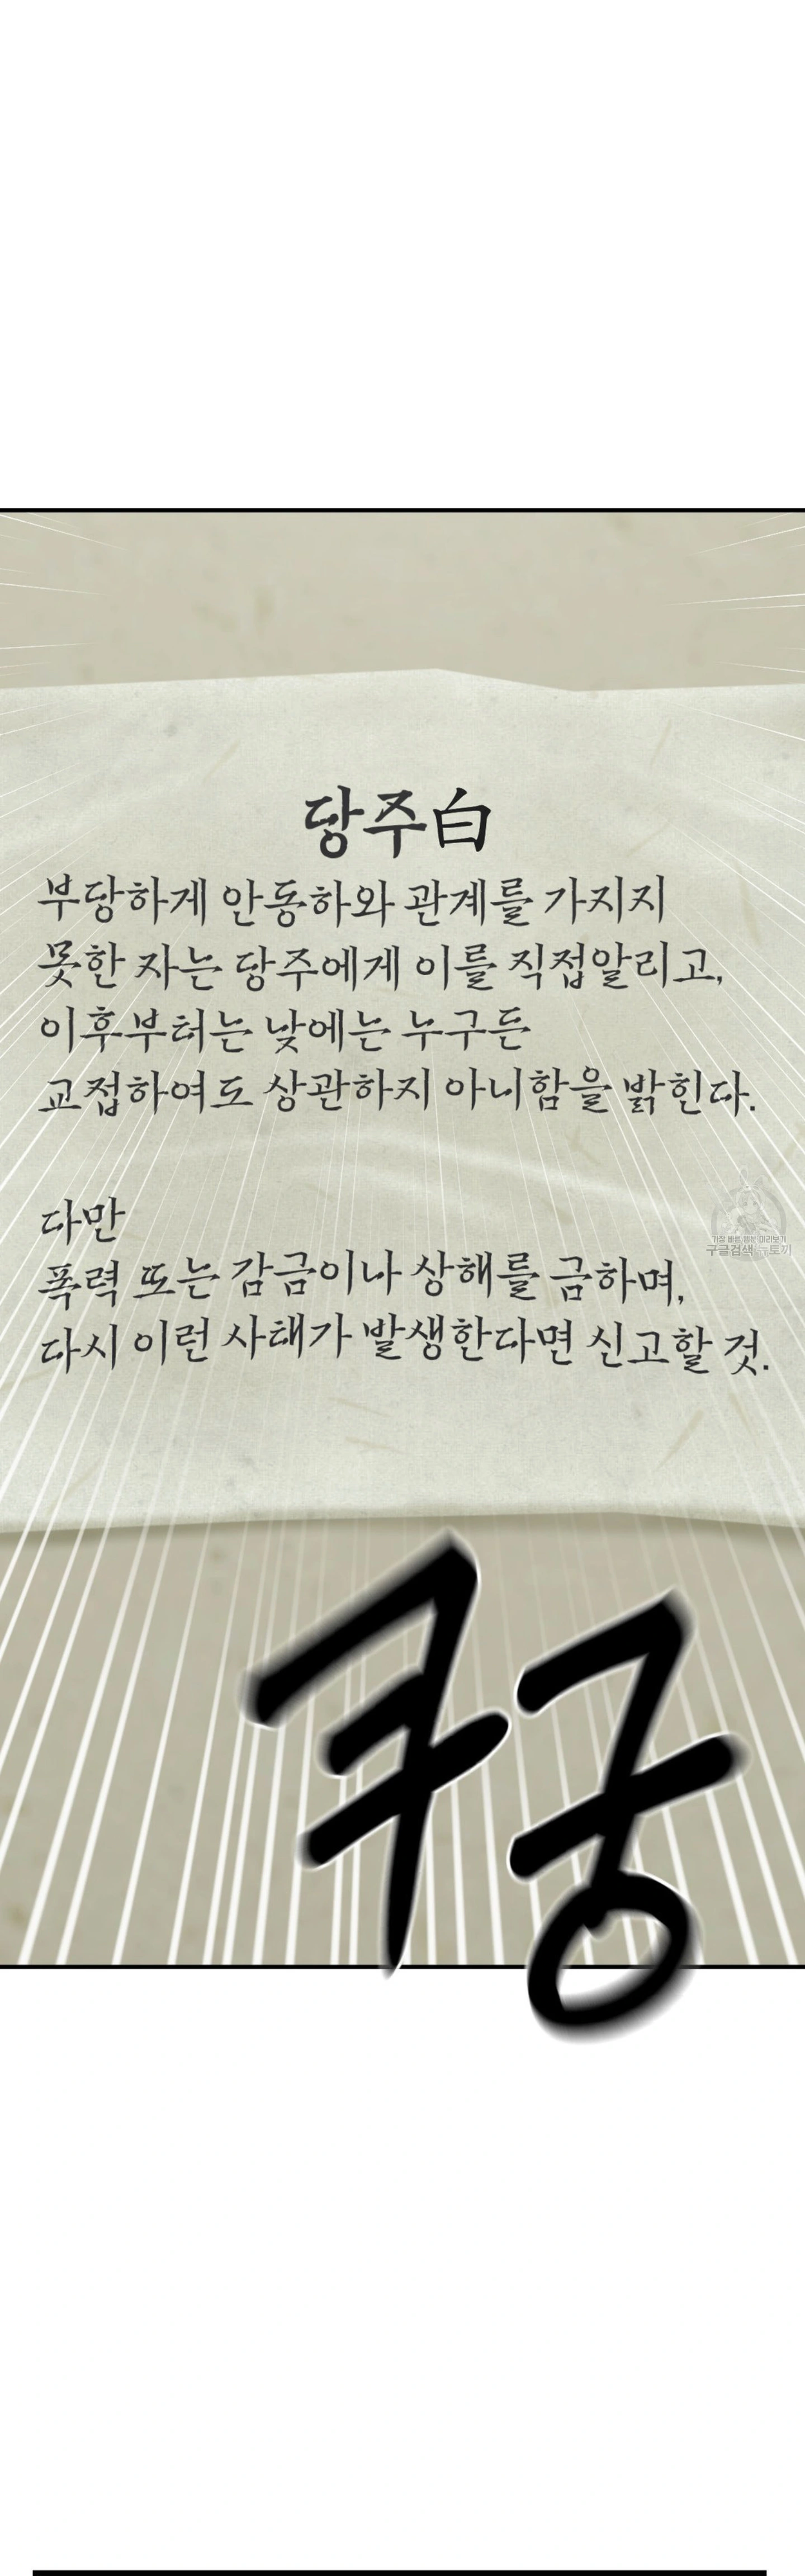 당주白
부당하게 안동하와 관계를 가지지
못한 자는 당주에게 이를 직접알리고,
이후부터는 낮에는 누구든
교접하여도 상관하지 아니함을 밝힌다.
다만
폭력 또는 감금이나 상해를 금하며,
다시 이런 사태가 발생한다면 신고할 것.
가장 빠른 웹툰 미리보기
구글검색 뉴토끼
쿠궁